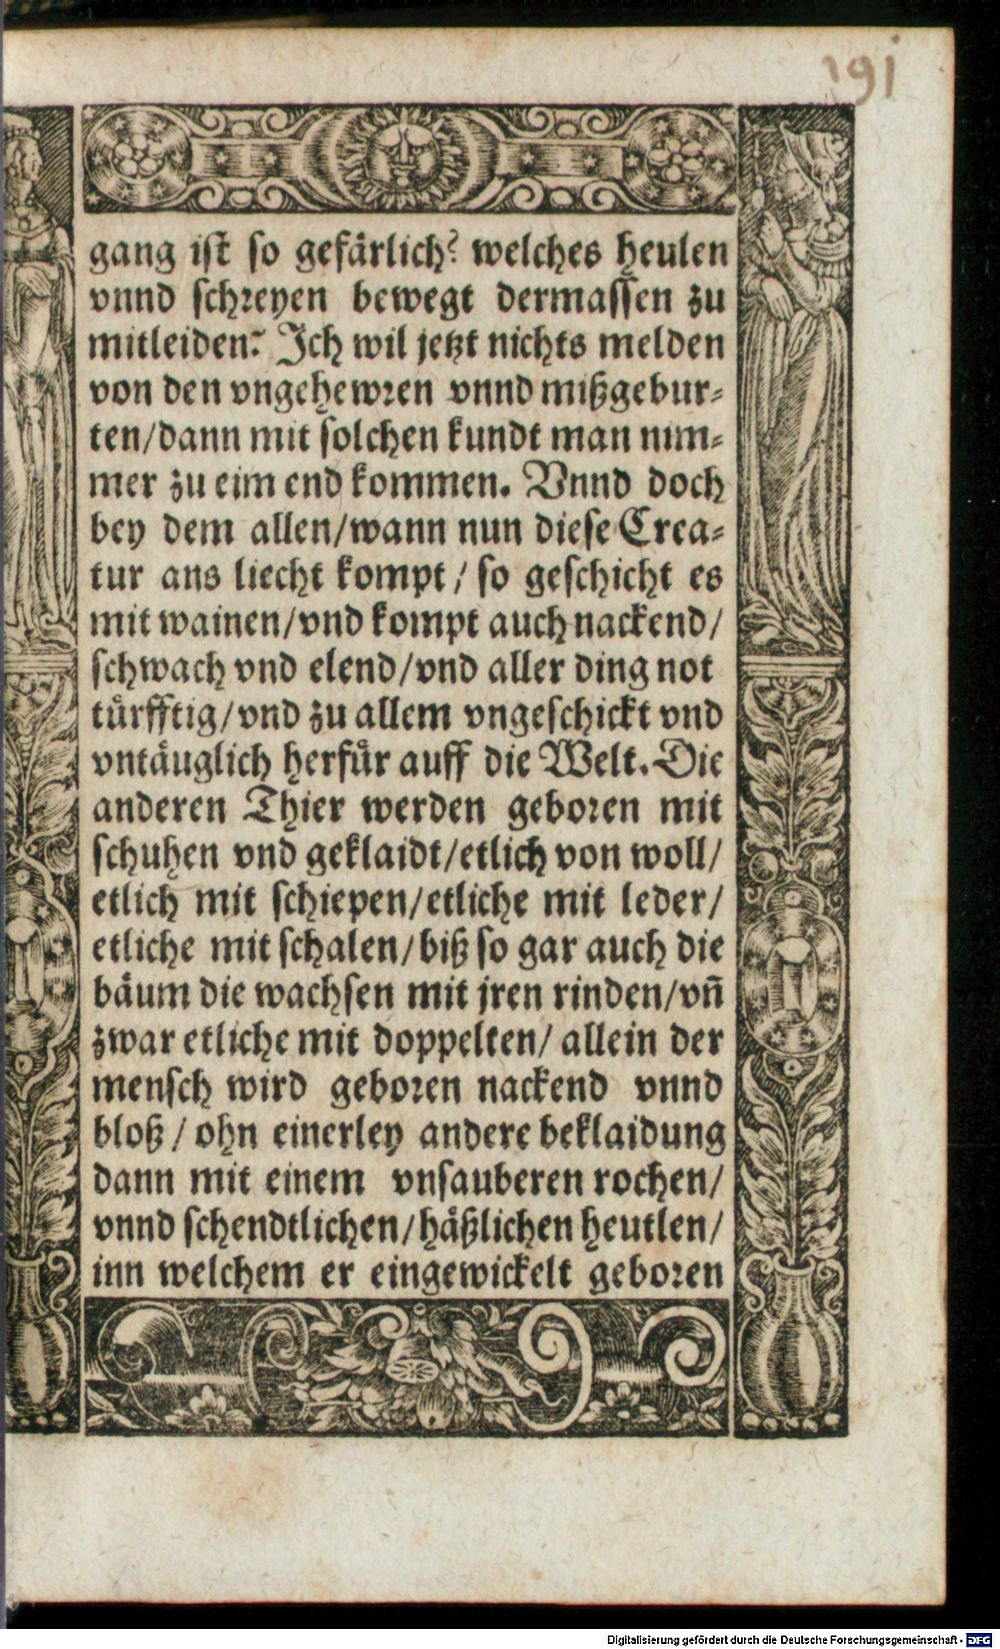 191
gang ist so gefärlich? welches heulen
vnnd schreyen bewegt dermassen zu
mitleiden? Ich wil jetzt nichts melden
von den vngehewren vnnd mißgebur-
ten/dann mit solchen kundt man nim-
mer zu eim end kommen. Vnnd doch
bey dem allen/wann nun diese Crea-
tur ans liecht kompt/ so geschicht es
mit wainen/vnd kompt auch nackend/
schwach vnd elend/vnd aller ding not
türfftig/vnd zu allem vngeschickt vnd
vntäuglich herfür auff die Welt. Die
anderen Thier werden geboren mit
schuhen vnd geklaidt/etlich von woll/
etlich mit schiepen/etliche mit leder/
etliche mit schalen/biß so gar auch die
bäum die wachsen mit jren rinden/vñ
zwar etliche mit doppelten/ allein der
mensch wird geboren nackend vnnd
bloß/ ohn einerley andere beklaidung
dann mit einem vnsauberen rochen/
vnnd schendtlichen/häßlichen heutlen/
inn welchem er eingewickelt geboren
Digitalisierung gefördert durch die Deutsche Forschungsgemeinschaft - DFG